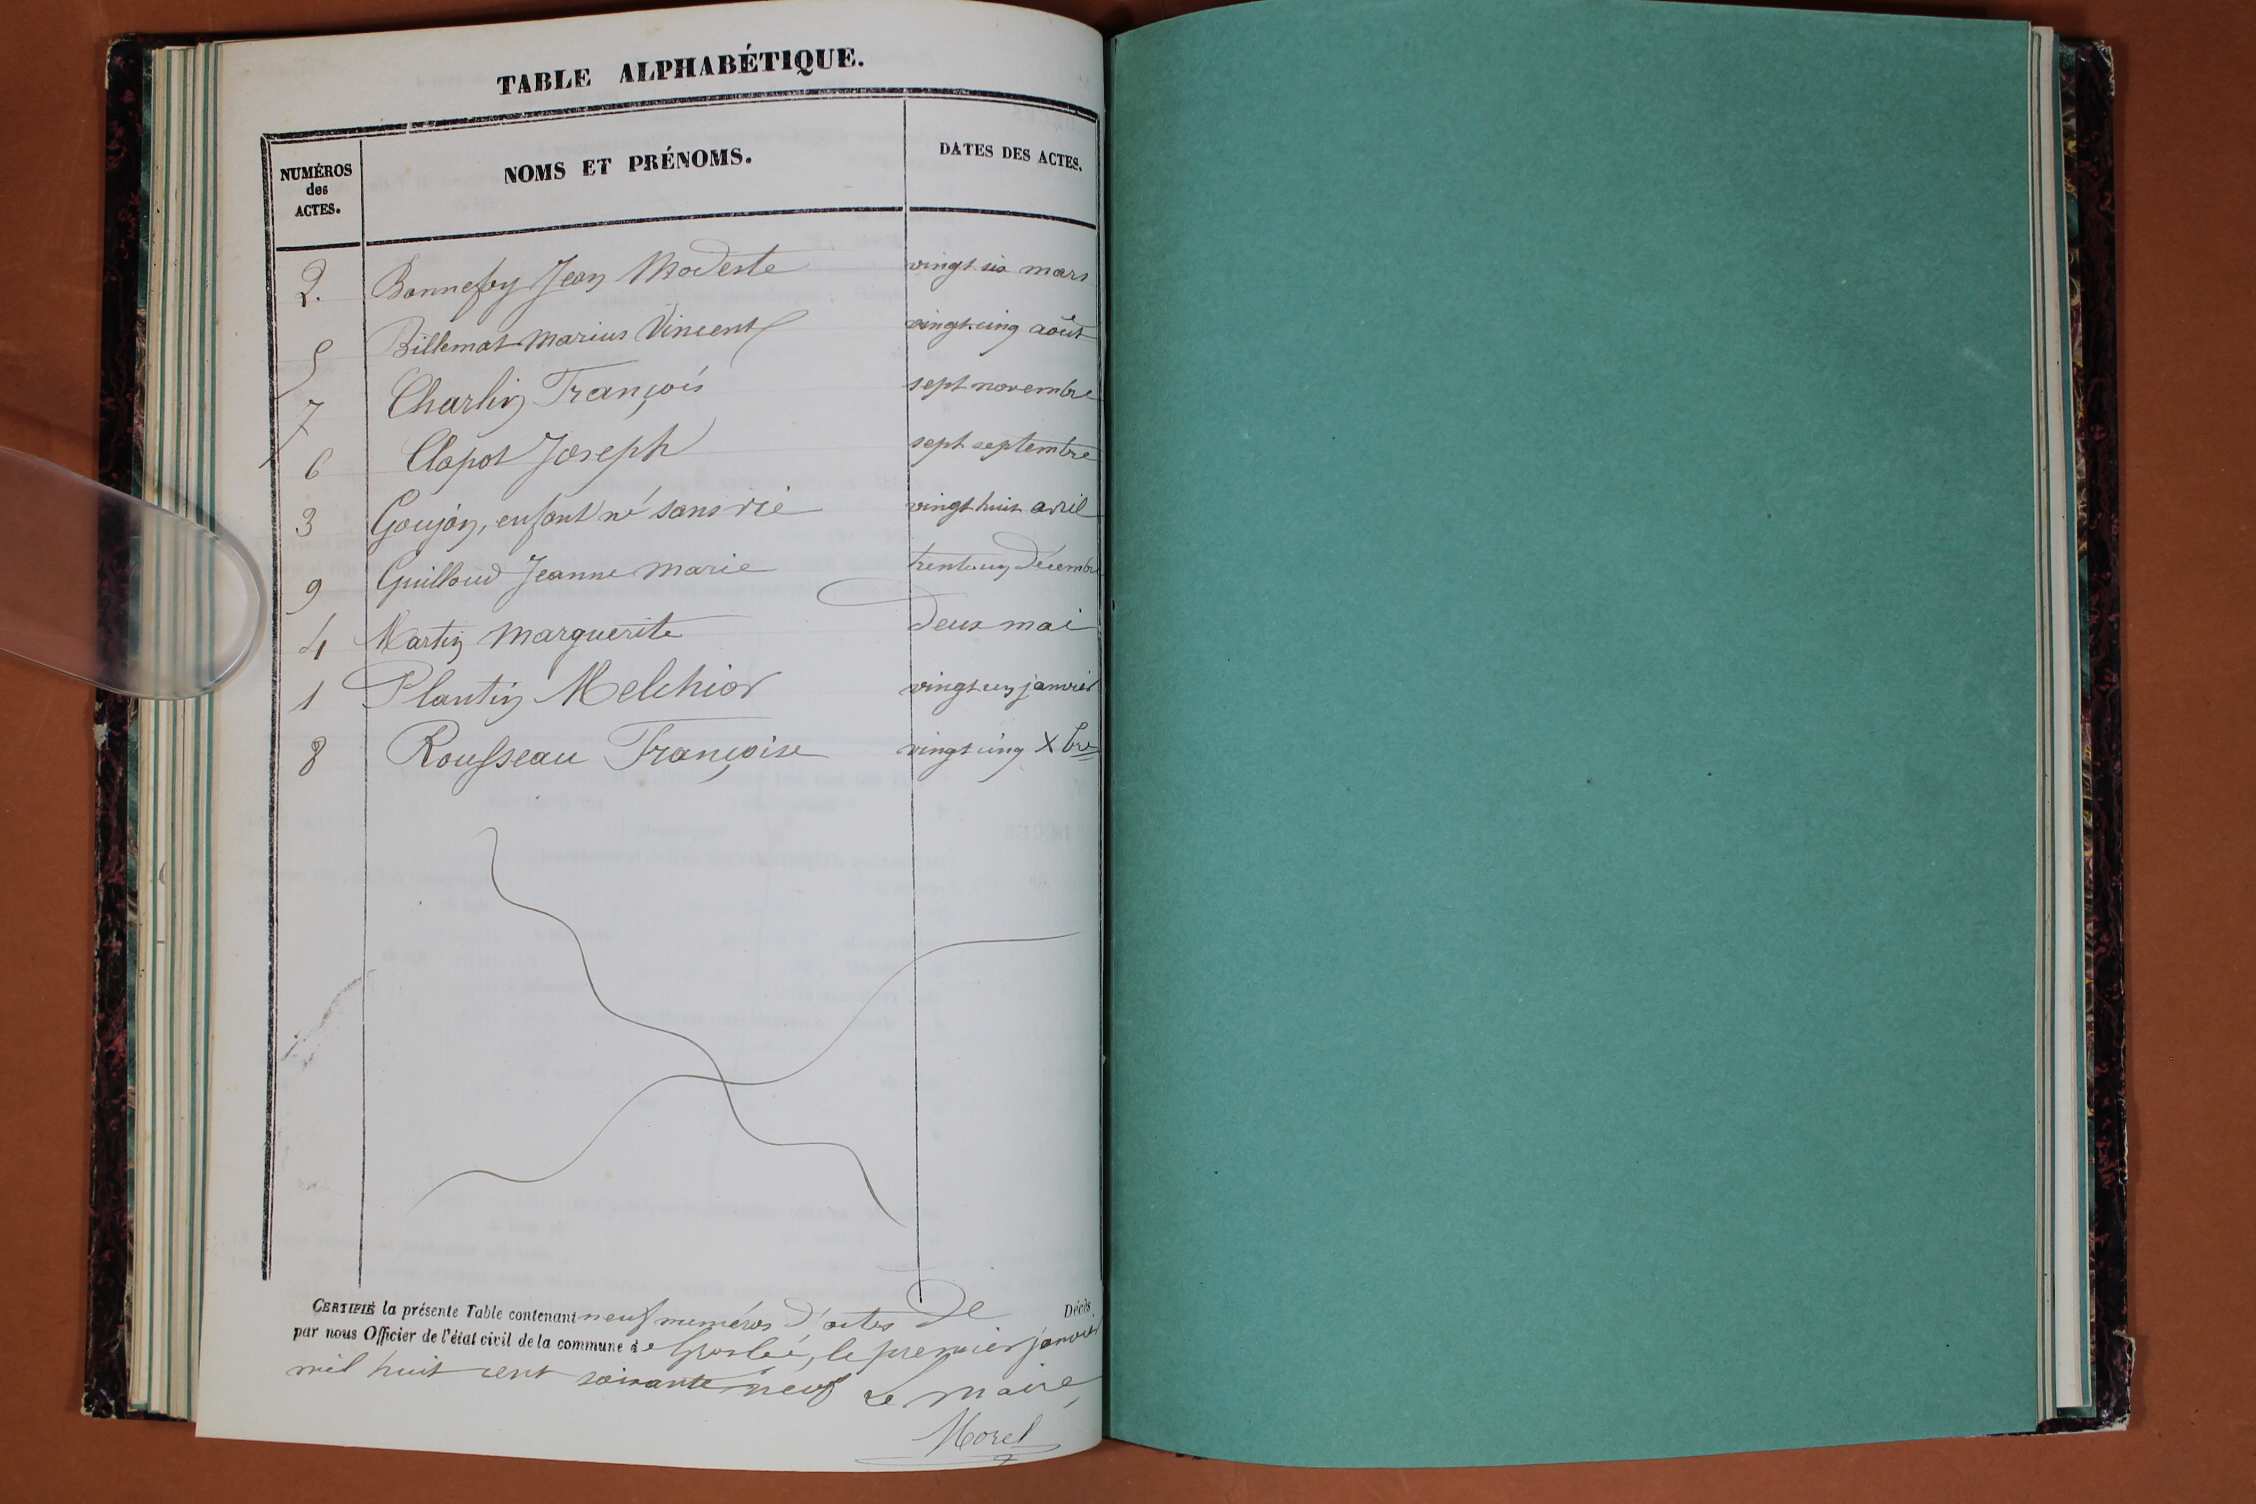 TABLE ALPHABÉTIQUE.
NUMÉROS des ACTES. NOMS ET PRÉNOMS. DATES DES ACTES.
2. Bonnefoy Jean Modeste vingt six mars
5 Billemat Marius Vincent vingt cinq août
7 Charlin François sept novembre
6 Clapot Joseph sept septembre
3 Goujon, enfant né sans vie vingt huit avril
9 Guilloud Jeanne Marie trente un Décembre
4 Martin Marguerite Deux mai
1 Plantin Melchior vingt un janvier
8 Rousseau Françoise vingt cinq Xbre
CERTIFIÉ la présente Table contenant neuf numéros d'actes de Décès
par nous Officier de l'état civil de la commune de Groslée, le premier janvier
mil huit cent soixante neuf Le Maire,
Morel